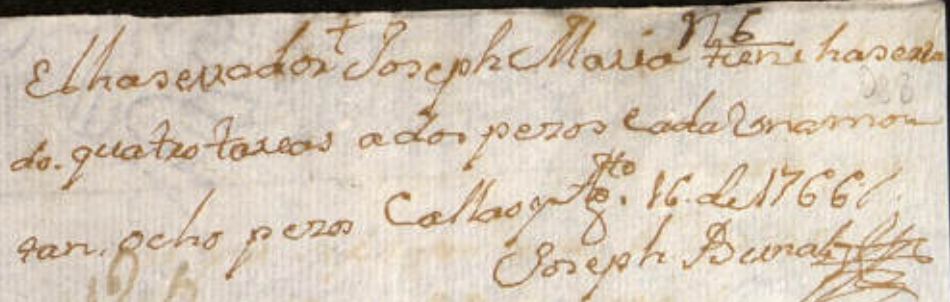 N 6
El haserrador Joseph Maria tiene haserra
do. quatro tareas a dos pezos Cada Una mon
tan. ocho pezos Callao y Agto. 16. de 1766/.
Joseph